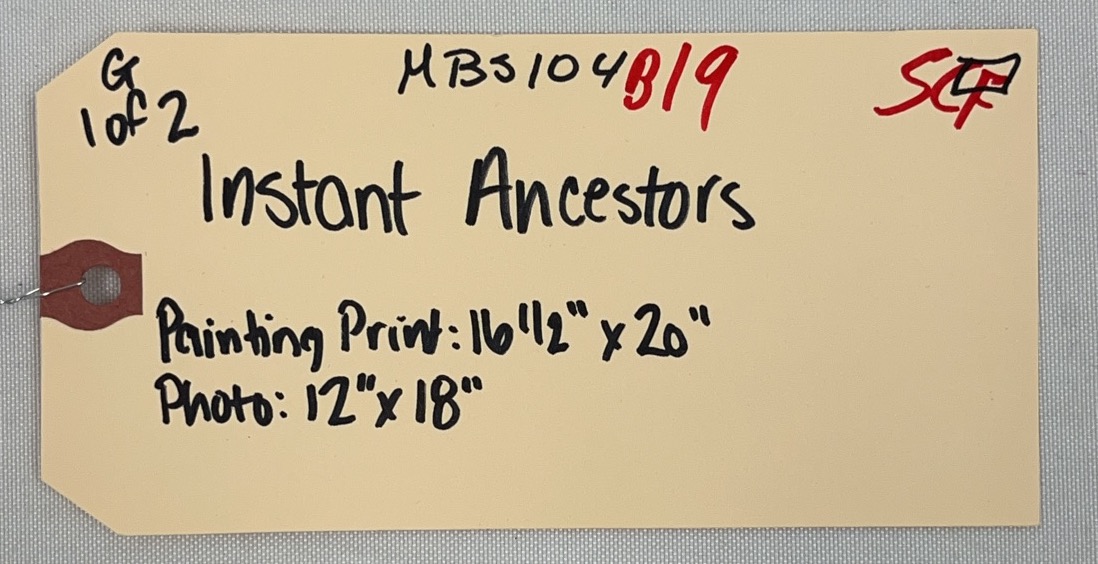 G
1 of 2
MBS104 B19
SCF
Instant Ancestors
Painting Print: 16 1/2" x 20"
Photo: 12" x 18"